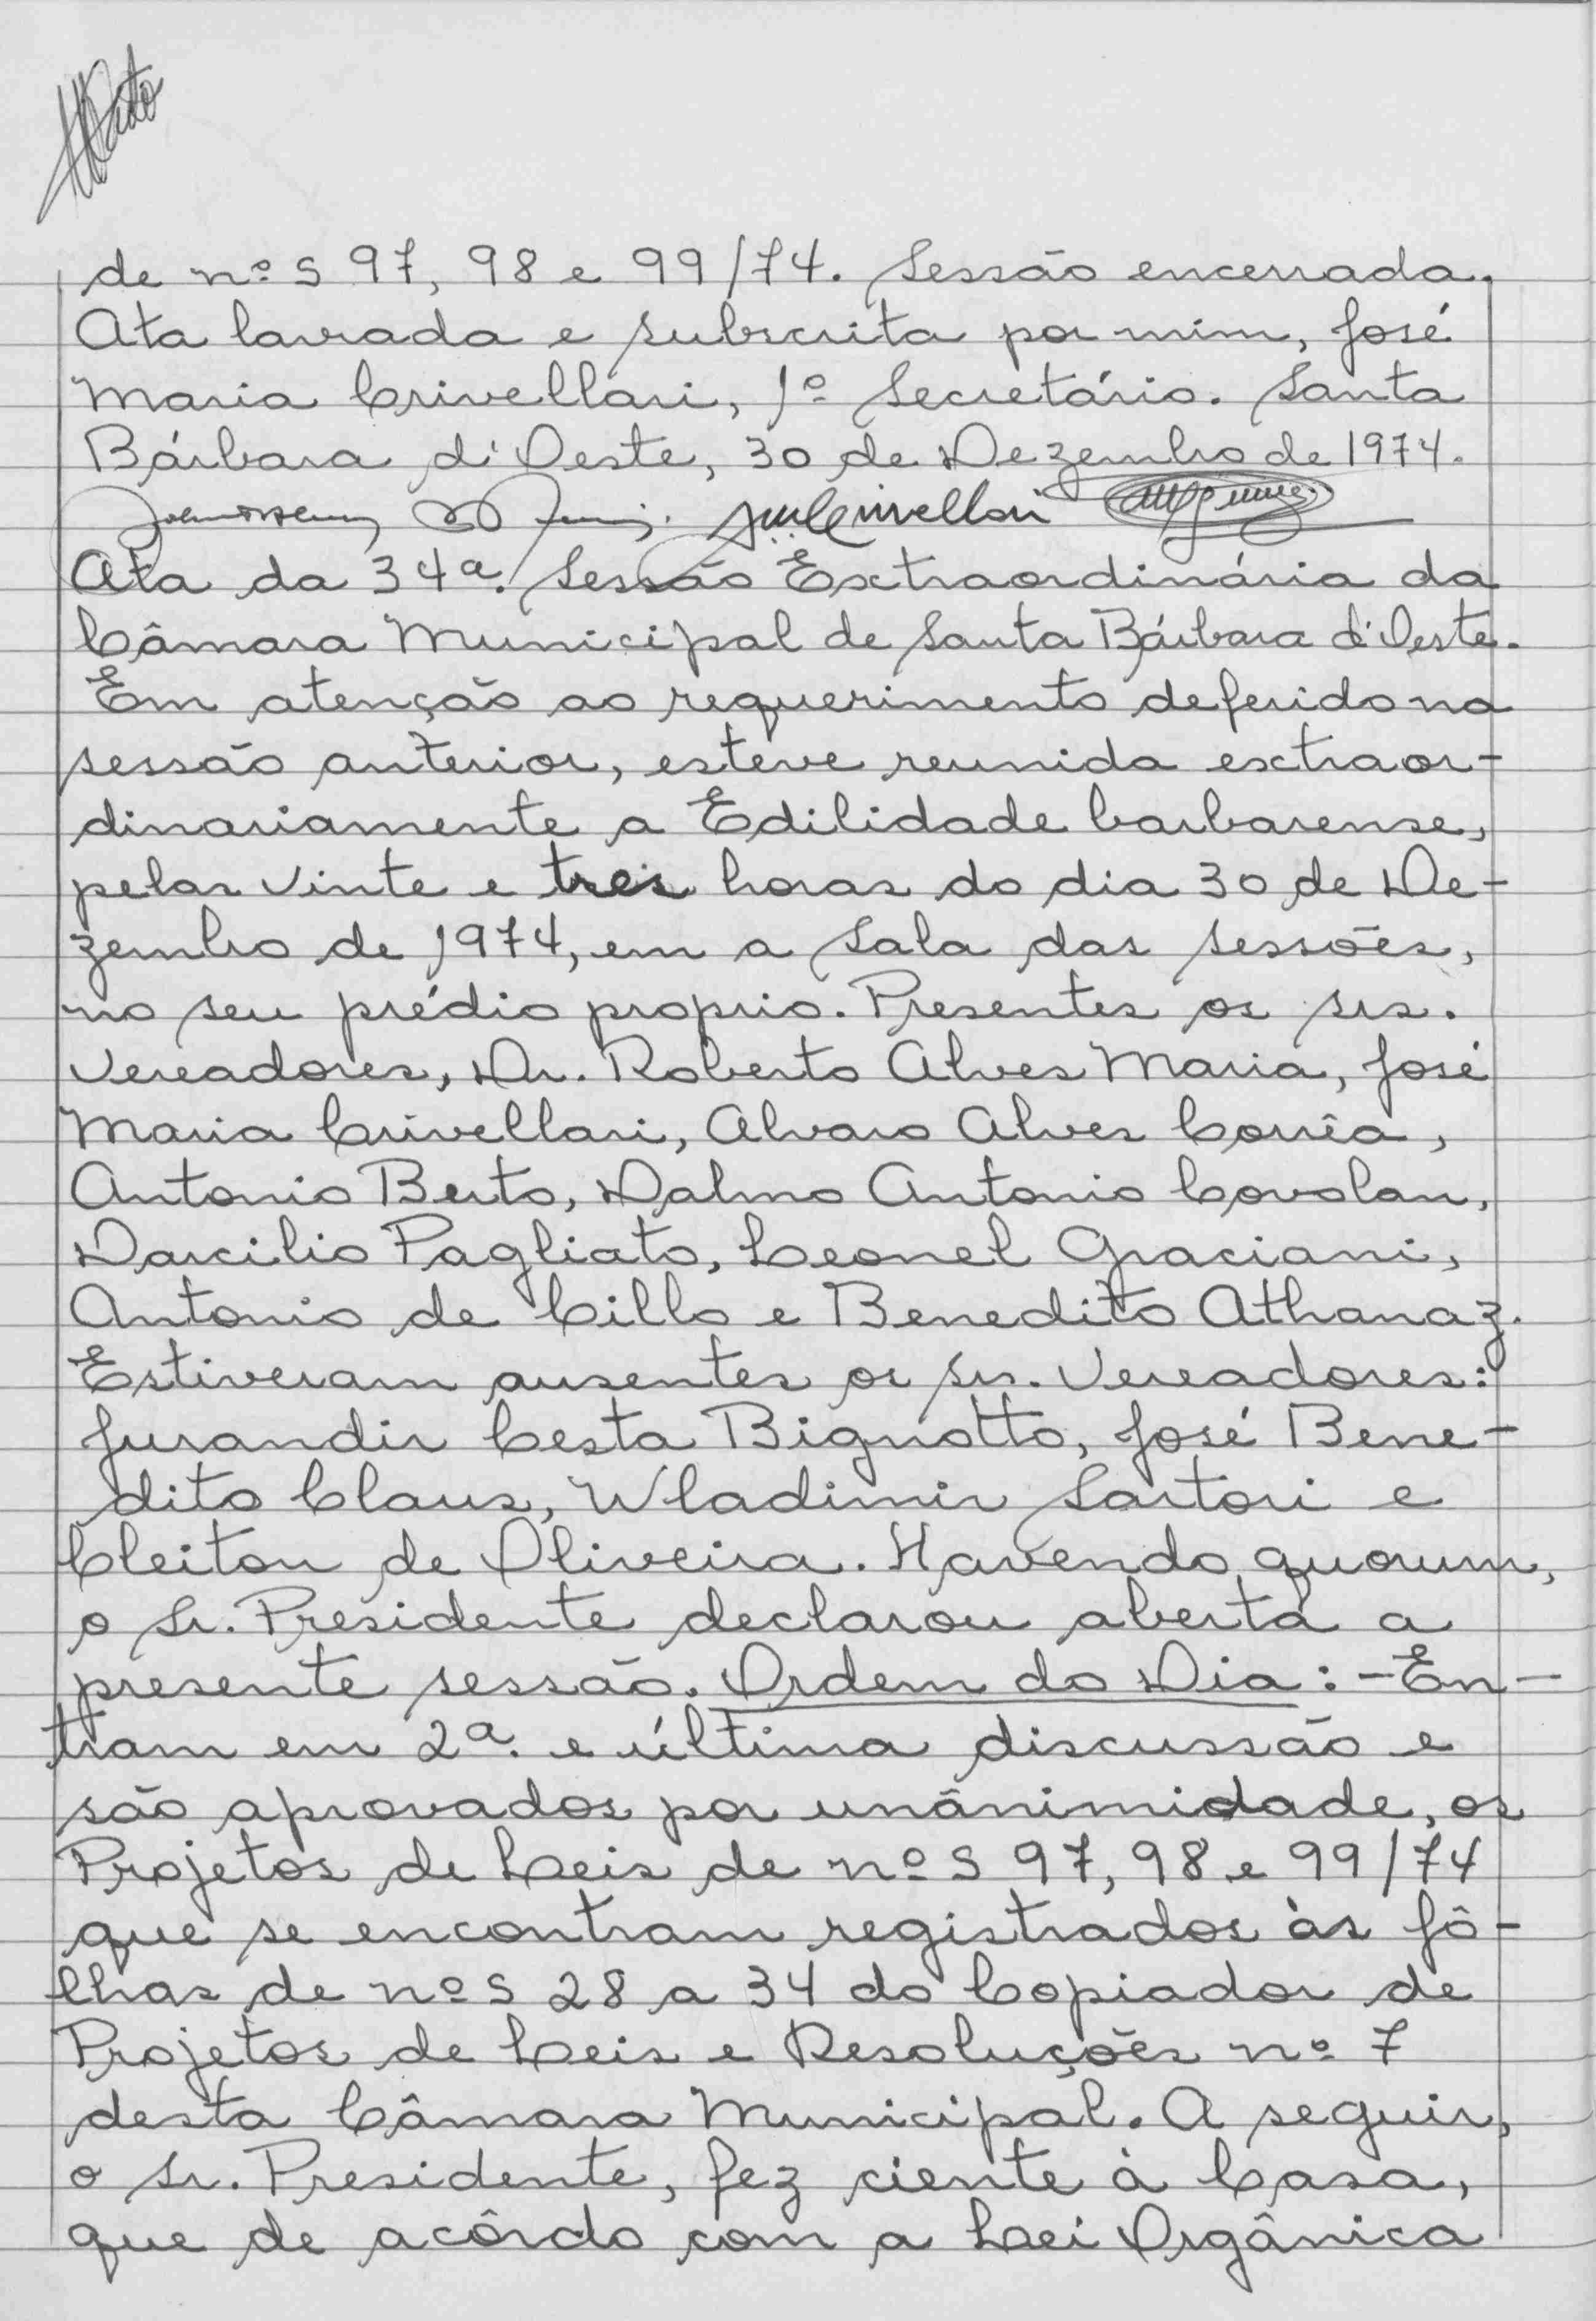 de nº s 97, 98 e 99/74. Sessão encerrada.
Ata lavrada e subscrita por mim, José
Maria Crivellari, 1º Secretário. Santa
Bárbara d'Oeste, 30 de Dezembro de 1974.
Ata da 34ª. Sessão Extraordinária da
Câmara Municipal de Santa Bárbara d'Oeste.
Em atenção ao requerimento deferido na
sessão anterior, esteve reunida extraor-
dinariamente a Edilidade barbarense,
pelas vinte e tres horas do dia 30 de De-
zembro de 1974, em a Sala das Sessões,
no seu prédio proprio. Presentes os srs.
Vereadores, Dr. Roberto Alves Maria, José
Maria Crivellari, Alvaro Alves Corrêa,
Antonio Berto, Dalmo Antonio Covolan,
Darcilio Pagliato, Leonel Graciani,
Antonio de Cillo e Benedito Athanaz.
Estiveram ausentes os srs. Vereadores:
Jurandir Cesta Bignotto, José Bene-
dito Claus, Wladimir Sartori e
Cleiton de Oliveira. Havendo quorum,
o Sr. Presidente declarou aberta a
presente sessão. Ordem do Dia: - En-
tram em 2ª. e última discussão e
são aprovados por unânimidade, os
Projetos de Leis de nº s 97, 98 e 99/74
que se encontram registrados às fô-
lhas de nº s 28 a 34 do Copiador de
Projetos de Leis e Resoluções nº 7
desta Câmara Municipal. A seguir,
o Sr. Presidente, fez ciente à Casa,
que de acôrdo com a Lei Orgânica